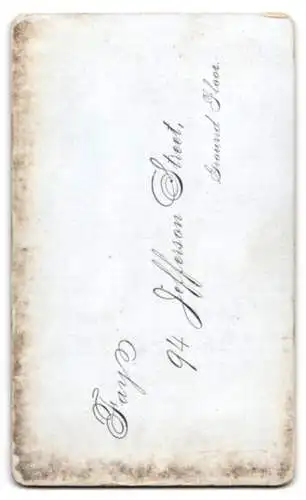 Fays
94 Jefferson Street,
Ground Floor.